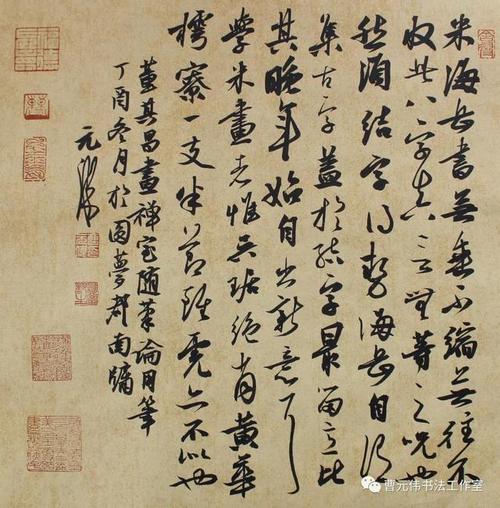 米海岳書無垂不縮無往不
收此八字真言無等之咒也
然須結字得勢海岳自謂
集古字蓋於結字最留意比
其晚年始自出新意耳
學米畫者惟吳琚絕肖黃華
樗寮一支半節雖虎亦不似也
董其昌畫禪室隨筆論用筆
丁酉冬月於圓夢都南牖
元偉
曹元伟书法工作室